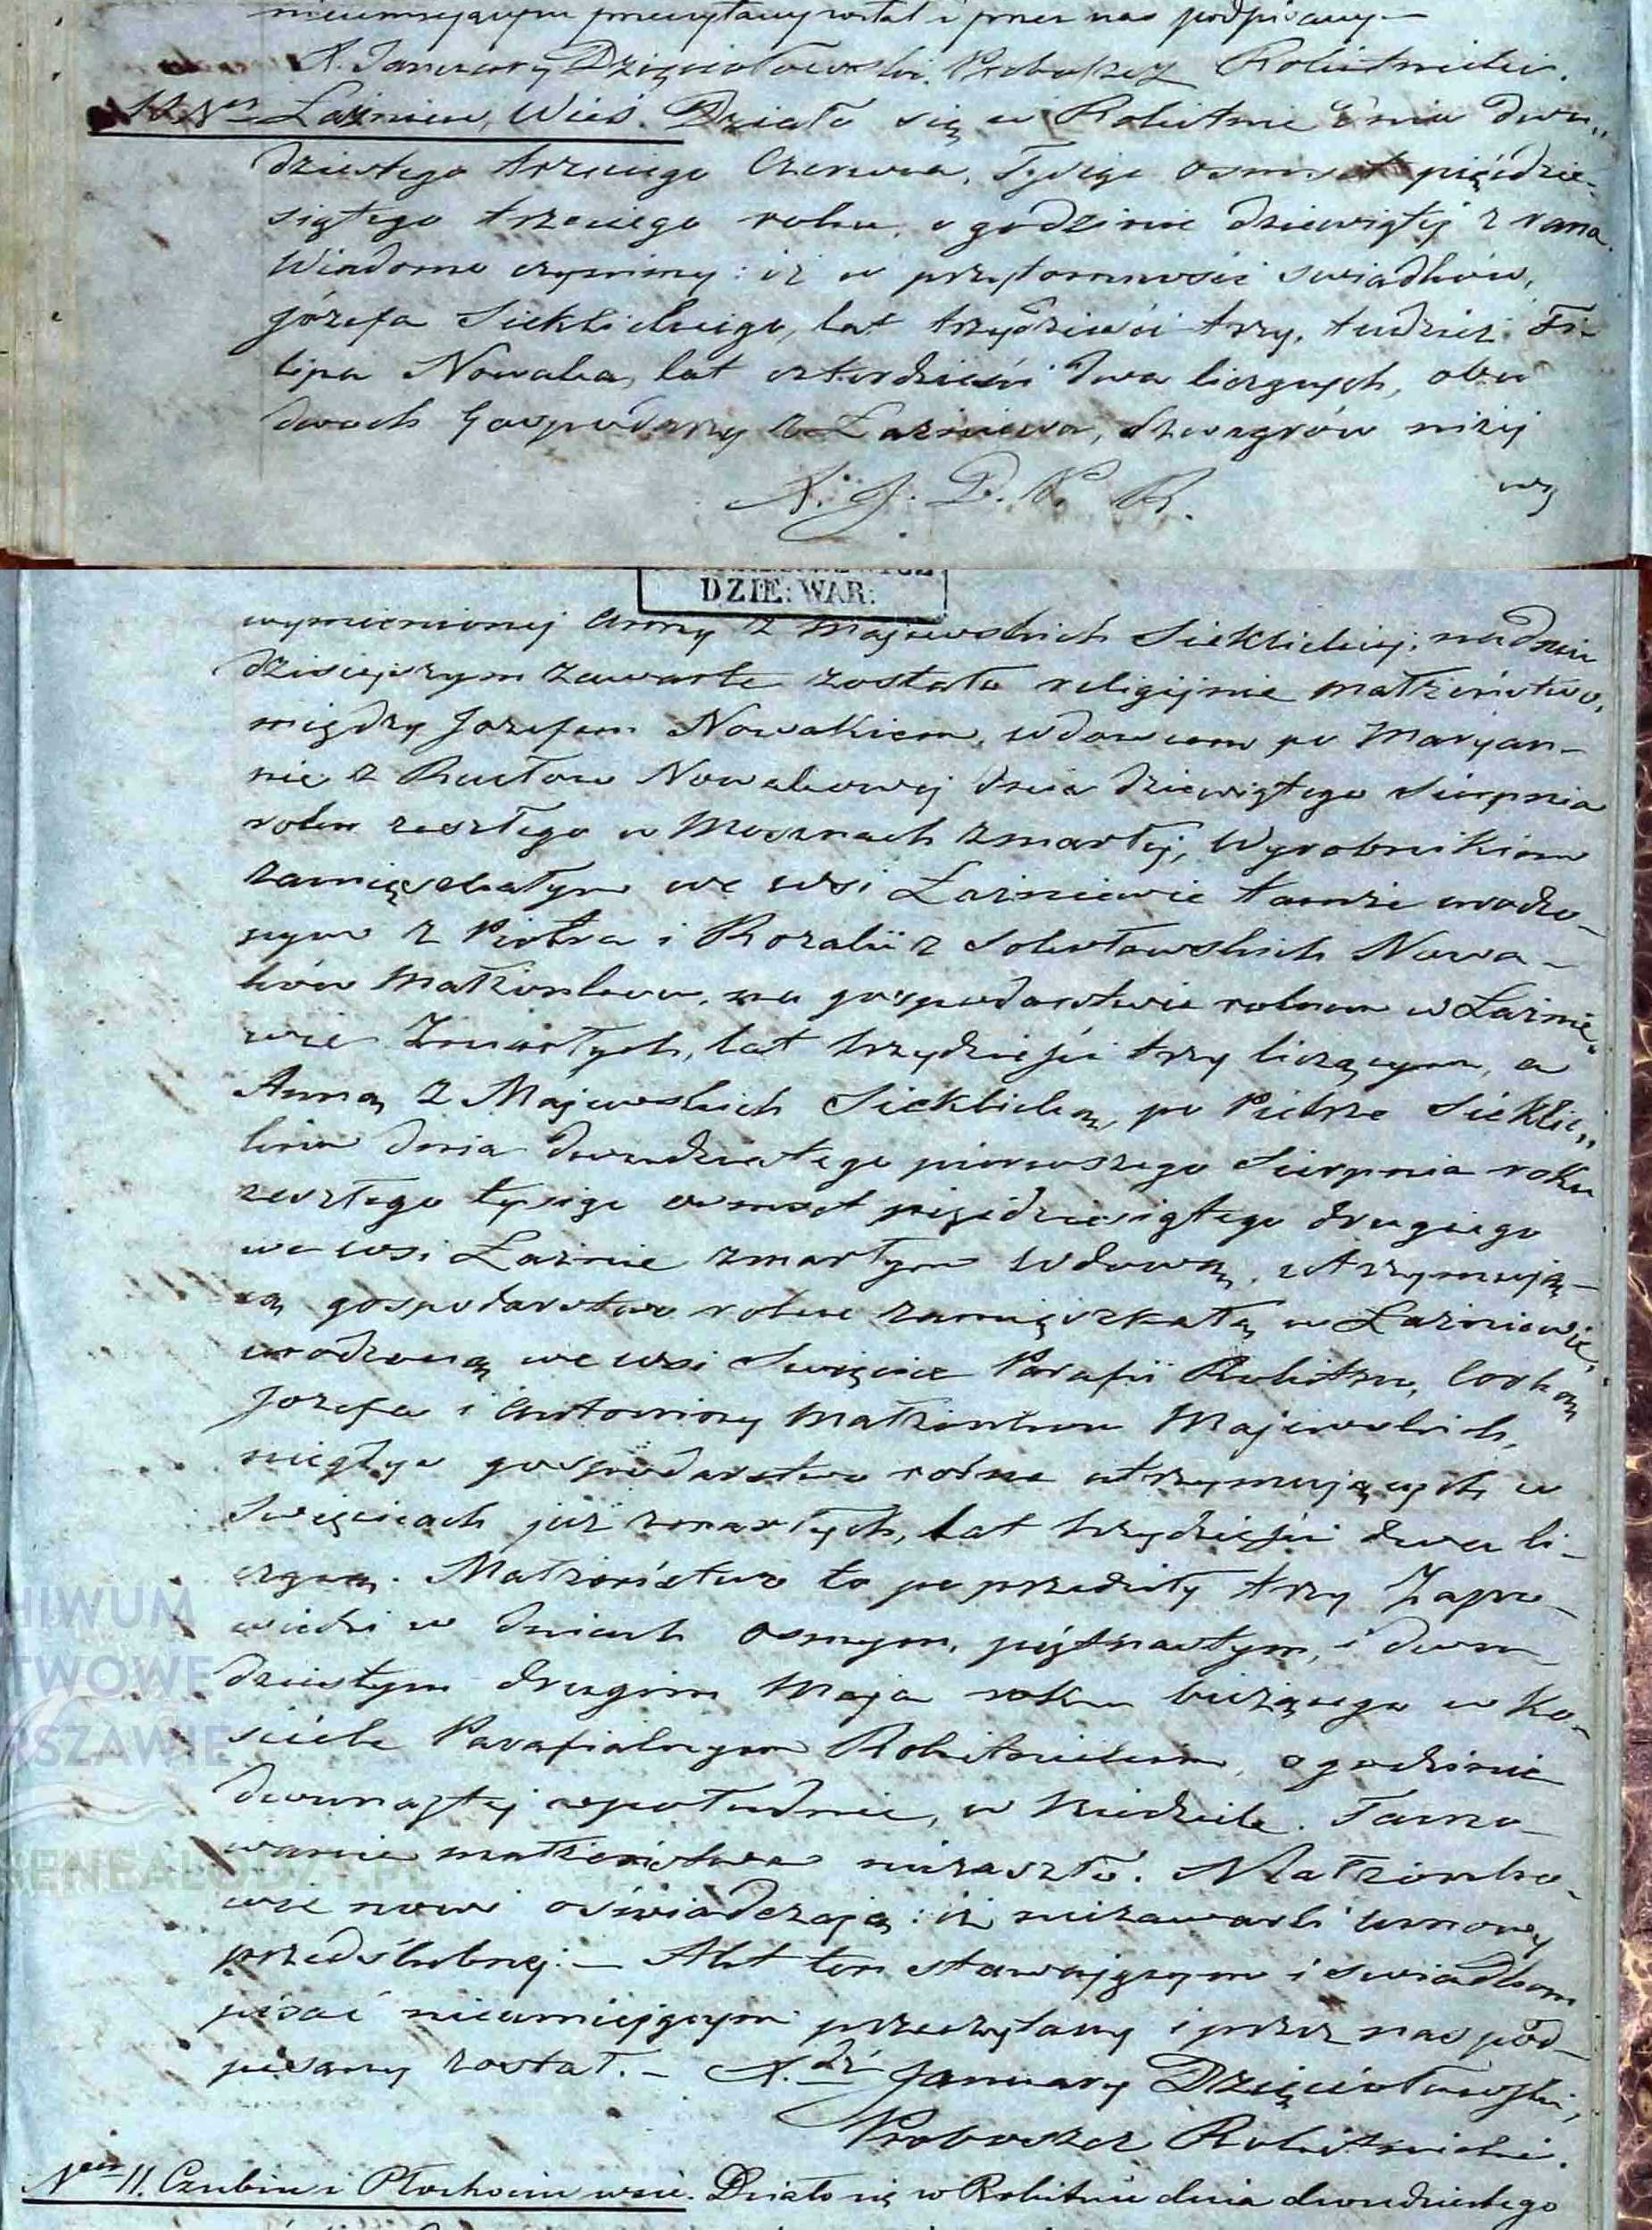 nieumiejącym przeczytany został i przez nas podpisany —
X. January Dzięciołowski Proboszcz Rokitnicki.
Ner Łaźniew, Wieś. Działo się w Rokitnie dnia dwu„
dziestego trzeciego Czerwca, Tysiąc osmset pięćdzie-
siątego trzeciego roku, o godzinie dziewiątej z rana.
Wiadomo czynimy: iż w przytomności swiadków,
Józefa Sieklickiego, lat trzydzieści trzy, tudzież Fi-
lipa Nowaka, lat czterdzieści dwa liczących, obu
dwoch Gospodarzy z Łaźniewa, szwagrów niżej
X. J. D. P. R.
wy
DZIE: WAR:
wymienionej Anny z Majewskich Sieklickiej; na dniu
dzisiejszym zawarte zostało religijnie małżeństwo,
między Jozefem Nowakiem, wdowcem po Maryan-
nie z Nowakowej dnia dziewiątego Sierpnia
roku zeszłego w Mosznach zmarłej, Wyrobnikiem
zamięszkałym we wsi Łaźniewie tamże urodzo-
nym z Piotra i Rozalii z Nowa-
ków Małżonków, na gospodarstwie rolnem w Łaźnie„
wie Zmarłych, lat trzydzieści trzy liczącym, a
Anną z Majewskich Sieklicką, po Pietrze Sieklic„
kim dnia dwudziestego pierwszego Sierpnia roku
zeszłego tysiąc osmset pięćdziesiątego drugiego
we wsi Łaźnie zmarłym wdową, utrzymują-
cą gospodarstwo rolne zamięszkałą w Łaźniewie,
urodzoną we wsi Swięcice Parafii Rokitno, Corką
Jozefa i Antoniny Małżonków Majewskich,
niegdyś gospodarstwo rolne utrzymujących w
Swięcicach już zmarłych, lat trzydzieści dwa li-
czącą. Małżeństwo to poprzedziły trzy Zapo-
wiedzi w dniach osmym, piętnastym, i dwu
dziestym drugim Maja roku bieżącego w Ko-
ściele Parafialnym Rokitnickim, o godzinie
dwunastej wpołudnie, w Niedziele. Tamo-
wanie małżeństwa niezaszło. Małżonko-
wie nowi oświadczają: iż niezawarli umowy
przedślubnej. — Akt ten stawającym i swiadkom
pisać nieumiejącym przeczytany i przez nas pod-
pisany został. — X. January Dzięciołowski,
Proboszcz Rokitnicki.
Ner 11. Czubin i Płochocin wsie. Działo się w Rokitnie dnia dwudziestego
HIWUM
TWOWE
RSZAWIE
GENEALODZY.PL